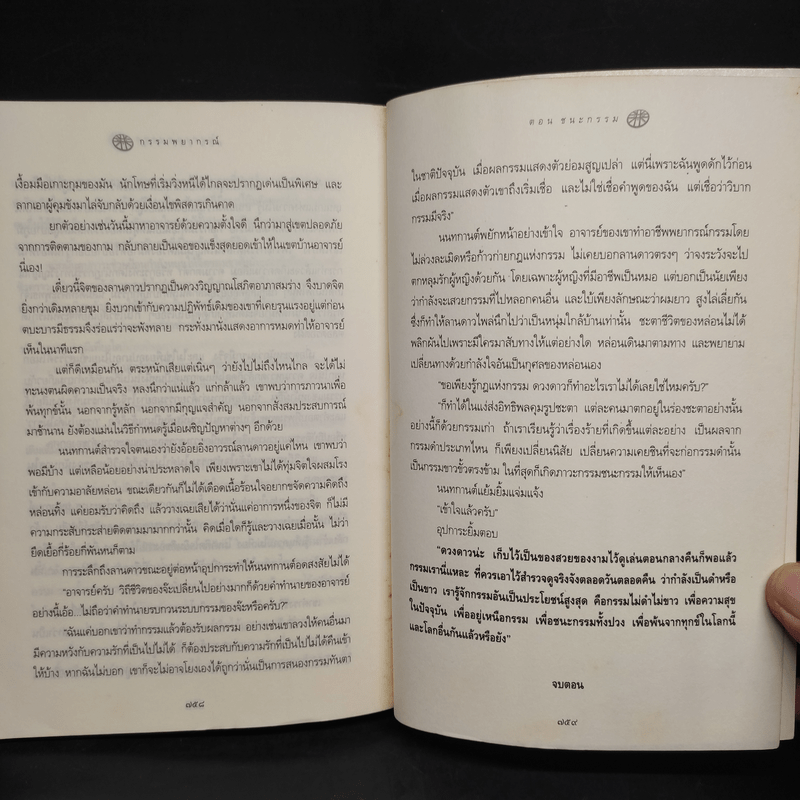 กรรมพยากรณ์
เงื้อมมือเกาะกุมของมัน นักโทษที่เริ่มวิ่งหนีได้ไกลจะปรากฏเด่นเป็นพิเศษ และ
ลากเอาผู้คุมขังมาไล่จับกลับด้วยเงื่อนไขพิสดารเกินคาด
ยกตัวอย่างเช่นวันนี้มาหาอาจารย์ด้วยความตั้งใจดี นึกว่ามาสู่เขตปลอดภัย
จากการติดตามของกาม กลับกลายเป็นเจอของแข็งสุดยอดเข้าให้ในเขตบ้านอาจารย์
นี่เอง!
เดี๋ยวนี้จิตของลานดาวปรากฏเป็นดวงวิญญาณโสภิตอาภาสมร่าง จึงบาดจิต
ยิ่งกว่าเดิมหลายขุม ยิ่งบวกเข้ากับความปฏิพัทธ์เดิมของเขาที่เคยรุนแรงอยู่แต่ก่อน
ตบะบารมีธรรมจึงร่อแร่ว่าจะพังทลาย กระทั่งมานั่งแสดงอาการหมดท่าให้อาจารย์
เห็นในนาทีแรก
แต่ก็ดีเหมือนกัน ตระหนักเสียแต่เนิ่นๆ ว่ายังไปไม่ถึงไหนไกล จะได้ไม่
ทะนงตนผิดความเป็นจริง หลงนึกว่าแน่แล้ว แก่กล้าแล้ว เขาพบว่าการภาวนาเพื่อ
พ้นทุกข์นั้น นอกจากรู้หลัก นอกจากมีกุญแจสำคัญ นอกจากสั่งสมประสบการณ์
มาช้านาน ยังต้องแม่นในวิธีกำหนดรู้เมื่อเผชิญปัญหาต่างๆ อีกด้วย
นนทกานต์สำรวจใจตนเองว่ายังอ้อยอิ่งอาวรณ์ลานดาวอยู่แค่ไหน เขาพบว่า
พอมีบ้าง แต่เหลือน้อยอย่างน่าประหลาดใจ เพียงเพราะเขาไม่ได้ทุ่มจิตใจผสมโรง
เข้ากับความอาลัยหล่อน ขณะเดียวกันก็ไม่ได้เดือดเนื้อร้อนใจอยากขจัดความคิดถึง
หล่อนทิ้ง แค่ยอมรับว่าคิดถึง แล้ววางเฉยเสียได้ว่านั่นแค่อาการหนึ่งของจิต ก็ไม่มี
ความกระสับกระส่ายติดตามมามากกว่านั้น คิดเมื่อใดก็รู้และวางเฉยเมื่อนั้น ไม่ว่า
ยืดเยื้อกี่ร้อยกี่พันหนก็ตาม
การระลึกถึงลานดาวขณะอยู่ต่อหน้าอุปการะทำให้นนทกานต์อดสงสัยไม่ได้
“อาจารย์ครับ วิถีชีวิตของจ๊ะเปลี่ยนไปอย่างมากก็ด้วยคำทำนายของอาจารย์
อย่างนี้เอ้อ...ไม่ถือว่าคำทำนายรบกวนระบบกรรมของจ๊ะหรือครับ?”
“ฉันแค่บอกเขาว่าทำกรรมแล้วต้องรับผลกรรม อย่างเช่นเขาลวงให้คนอื่นมา
มีความหวังกับความรักที่เป็นไปไม่ได้ ก็ต้องประสบกับความรักที่เป็นไปไม่ได้คืนเข้า
ให้บ้าง หากฉันไม่บอก เขาก็จะไม่อาจโยงเองได้ถูกว่านั่นเป็นการสนองกรรมทันตา
๗๕๘
ตอน ชนะกรรม
ในชาติปัจจุบัน เมื่อผลกรรมแสดงตัวย่อมสูญเปล่า แต่นี่เพราะฉันพูดดักไว้ก่อน
เมื่อผลกรรมแสดงตัวเขาถึงเริ่มเชื่อ และไม่ใช่เชื่อคำพูดของฉัน แต่เชื่อว่าวิบาก
กรรมมีจริง”
นนทกานต์พยักหน้าอย่างเข้าใจ อาจารย์ของเขาทำอาชีพพยากรณ์กรรมโดย
ไม่ล่วงละเมิดหรือก้าวก่ายกฎแห่งกรรม ไม่เคยบอกลานดาวตรงๆ ว่าจงระวังจะไป
ตกหลุมรักผู้หญิงด้วยกัน โดยเฉพาะผู้หญิงที่มีอาชีพเป็นหมอ แต่บอกเป็นนัยเพียง
ว่ากำลังจะเสวยกรรมที่ไปหลอกคนอื่น และใบ้เพียงลักษณะว่าผมยาว สูงไล่เลี่ยกัน
ซึ่งก็ทำให้ลานดาวไพล่นึกไปว่าเป็นหนุ่มใกล้บ้านเท่านั้น ชะตาชีวิตของหล่อนไม่ได้
พลิกผันไปเพราะมีใครมาสับทางให้แต่อย่างใด หล่อนเดินมาตามทาง และพยายาม
เปลี่ยนทางด้วยกำลังใจอันเป็นกุศลของหล่อนเอง
“ขอเพียงรู้กฎแห่งกรรม ดวงดาวก็ทำอะไรเราไม่ได้เลยใช่ไหมครับ?”
“ก็ทำได้ในแง่ส่งอิทธิพลคุมรูปชะตา แต่ละคนมาตกอยู่ในร่องชะตาอย่างนั้น
อย่างนี้ก็ด้วยกรรมเก่า ถ้าเราเรียนรู้ว่าเรื่องร้ายที่เกิดขึ้นแต่ละอย่าง เป็นผลจาก
กรรมดำประเภทไหน ก็เพียงเปลี่ยนนิสัย เปลี่ยนความเคยชินที่จะก่อกรรมดำนั้น
เป็นกรรมขาวขั้วตรงข้าม ในที่สุดก็เกิดภาวะกรรมชนะกรรมให้เห็นเอง”
นนทกานต์แย้มยิ้มแจ่มแจ้ง
“เข้าใจแล้วครับ”
อุปการะยิ้มตอบ
“ดวงดาวน่ะ เก็บไว้เป็นของสวยของงามไว้ดูเล่นตอนกลางคืนก็พอแล้ว
กรรมเรานี่แหละ ที่ควรเอาไว้สำรวจดูจริงจังตลอดวันตลอดคืน ว่ากำลังเป็นดำหรือ
เป็นขาว เรารู้จักกรรมอันเป็นประโยชน์สูงสุด คือกรรมไม่ดำไม่ขาว เพื่อความสุข
ในปัจจุบัน เพื่ออยู่เหนือกรรม เพื่อชนะกรรมทั้งปวง เพื่อพ้นจากทุกข์ในโลกนี้
และโลกอื่นกันแล้วหรือยัง”
จบตอน
๗๕๙